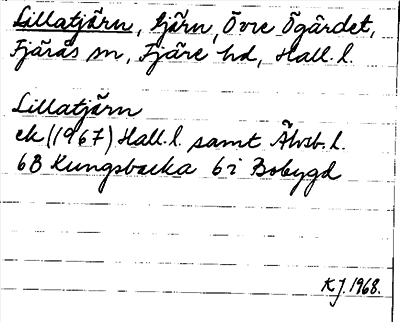 Lillatjärn, tjärn, Övre Ögärdet,
Fjärås sn, Fjäre hd, Hall. l.
Lillatjärn
ek (1967) Hall. l. samt Älvsb. l.
6B Kungsbacka 6i Bobygd
K J. 1968.